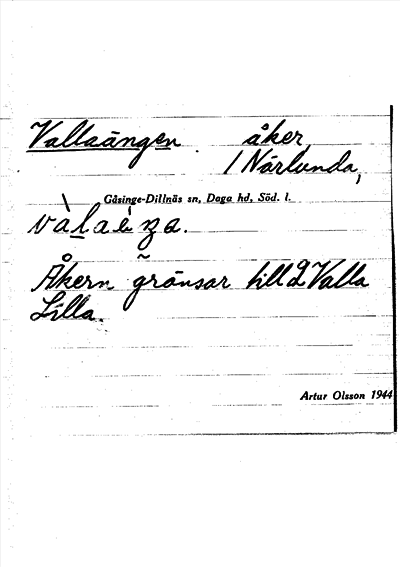 Vallaängen. åker,
1 Närlunda,
Gåsinge-Dillnäs sn, Daga hd, Söd. l.
Åkern gränsar till 2 Valla
Lilla.
Artur Olsson 1944